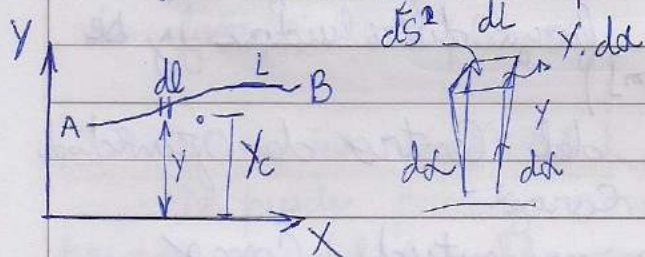 Y
dl
L
A
B
Y
Yc
X
ds
dl
Y.dα
Y
dα
dα